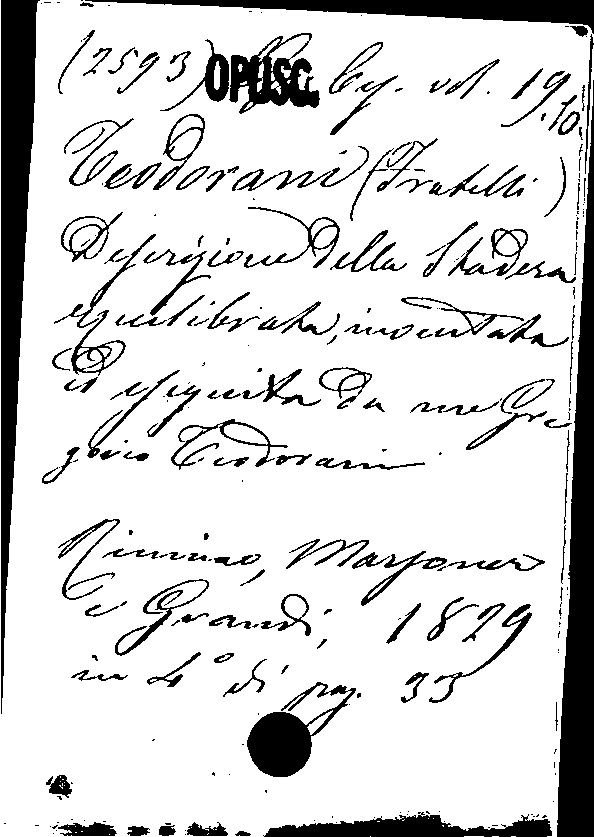 (2593) OPUSC. vol. 19.10
Teodorani (Fratelli)
Descrizione della Stadera
equilibrata, inventata
ed eseguita da me Gre
gorio Teodorani
Rimino, Marsoner
e Grandi, 1829
in 4° di pag. 33